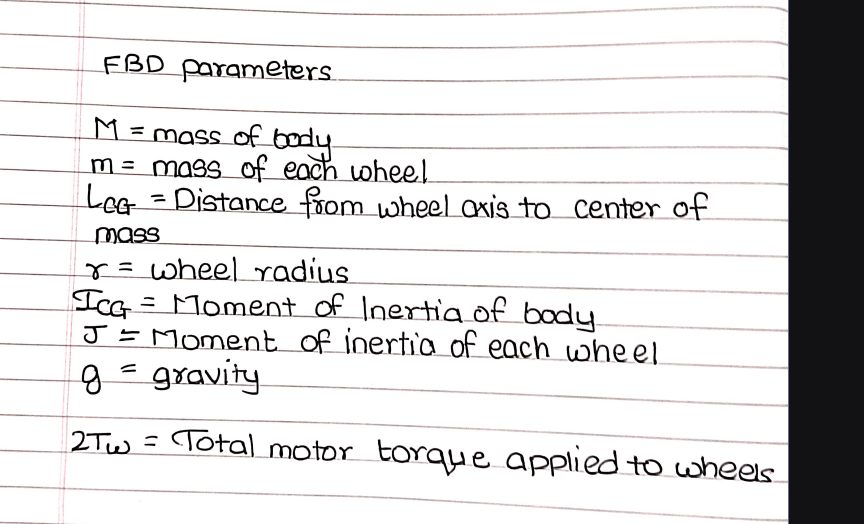 FBD parameters
M = mass of body
m = mass of each wheel
L_CG = Distance from wheel axis to center of
mass
r = wheel radius
I_CG = Moment of Inertia of body
J = Moment of inertia of each wheel
g = gravity
2Tw = Total motor torque applied to wheels